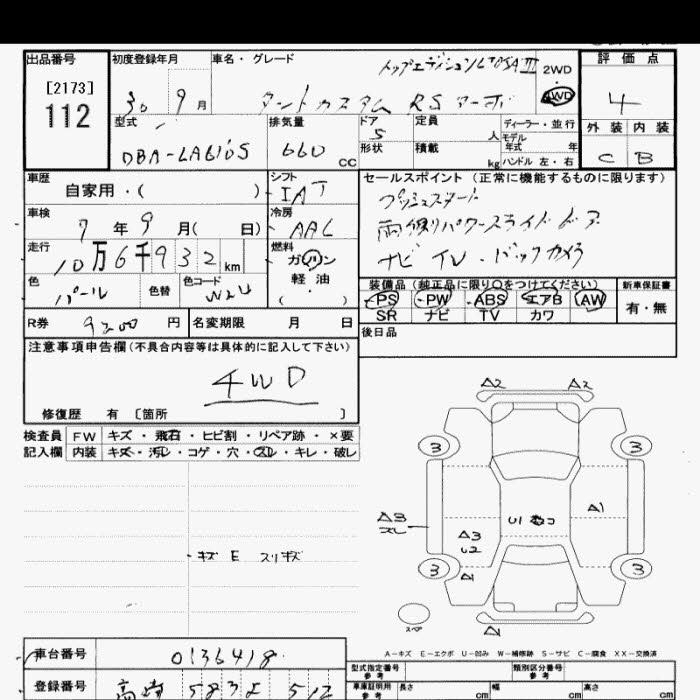 出品番号
[2173]
112
初度登録年月
30 9 月
車名・グレード
トップエディションSAⅢ
タントカスタム RS ターボ
2WD
4WD
評価点
4
外装 内装
C B
型式
DBA-LA610S
排気量
660 CC
ドア
5
定員
人
形状
積載
kg
ディーラー・並行
モデル
年式 年
ハンドル 左・右
車歴
自家用・( )
シフト
IAT
車検
7 年 9 月( 日)
冷房
AAC
走行
10万6千932 km
燃料
ガソリン
軽・油
( ・ )
色
パール
色替
色コード
W24
R券
9200 円
名変期限 月 日
セールスポイント (正常に機能するものに限ります)
プッシュスタート
両側パワースライドドア
ナビ TV・バックカメラ
装備品(純正品に限り○をつけてください)
新車保証書
PS PW ABS エアB AW
SR ナビ TV カワ
有・無
後日品
注意事項申告欄(不具合内容等は具体的に記入して下さい)
4WD
修復歴 有 〔箇所 〕
検査員
記入欄
FW キズ・飛石・ヒビ割・リペア跡・×要
内装 キズ・汚レ・コゲ・穴・スレ・キレ・破レ
キズ E スリキズ
A2 A2
3 3
A3
スレ
U1 数コ
A1
A3
U2
A1
3 3
スペ
A1
A-キズ E-エクボ U-凹み W-補修跡 S-サビ C-腐食 XX-交換済
車台番号
0136418
登録番号
高崎 583 512
型式指定番号
参考
類別区分番号
参考
車庫証明用
参考
長さ cm
幅 cm
高さ cm